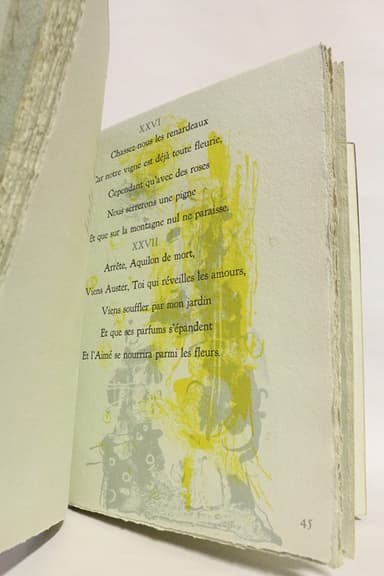 XXVI
Chassez-nous les renardeaux
Car notre vigne est déjà toute fleurie,
Cependant qu'avec des roses
Nous serrerons une pigne
Et que sur la montagne nul ne paraisse.
XXVII
Arrête, Aquilon de mort,
Viens Auster, Toi qui réveilles les amours,
Viens souffler par mon jardin
Et que ses parfums s'épandent
Et l'Aimé se nourrira parmi les fleurs.
45